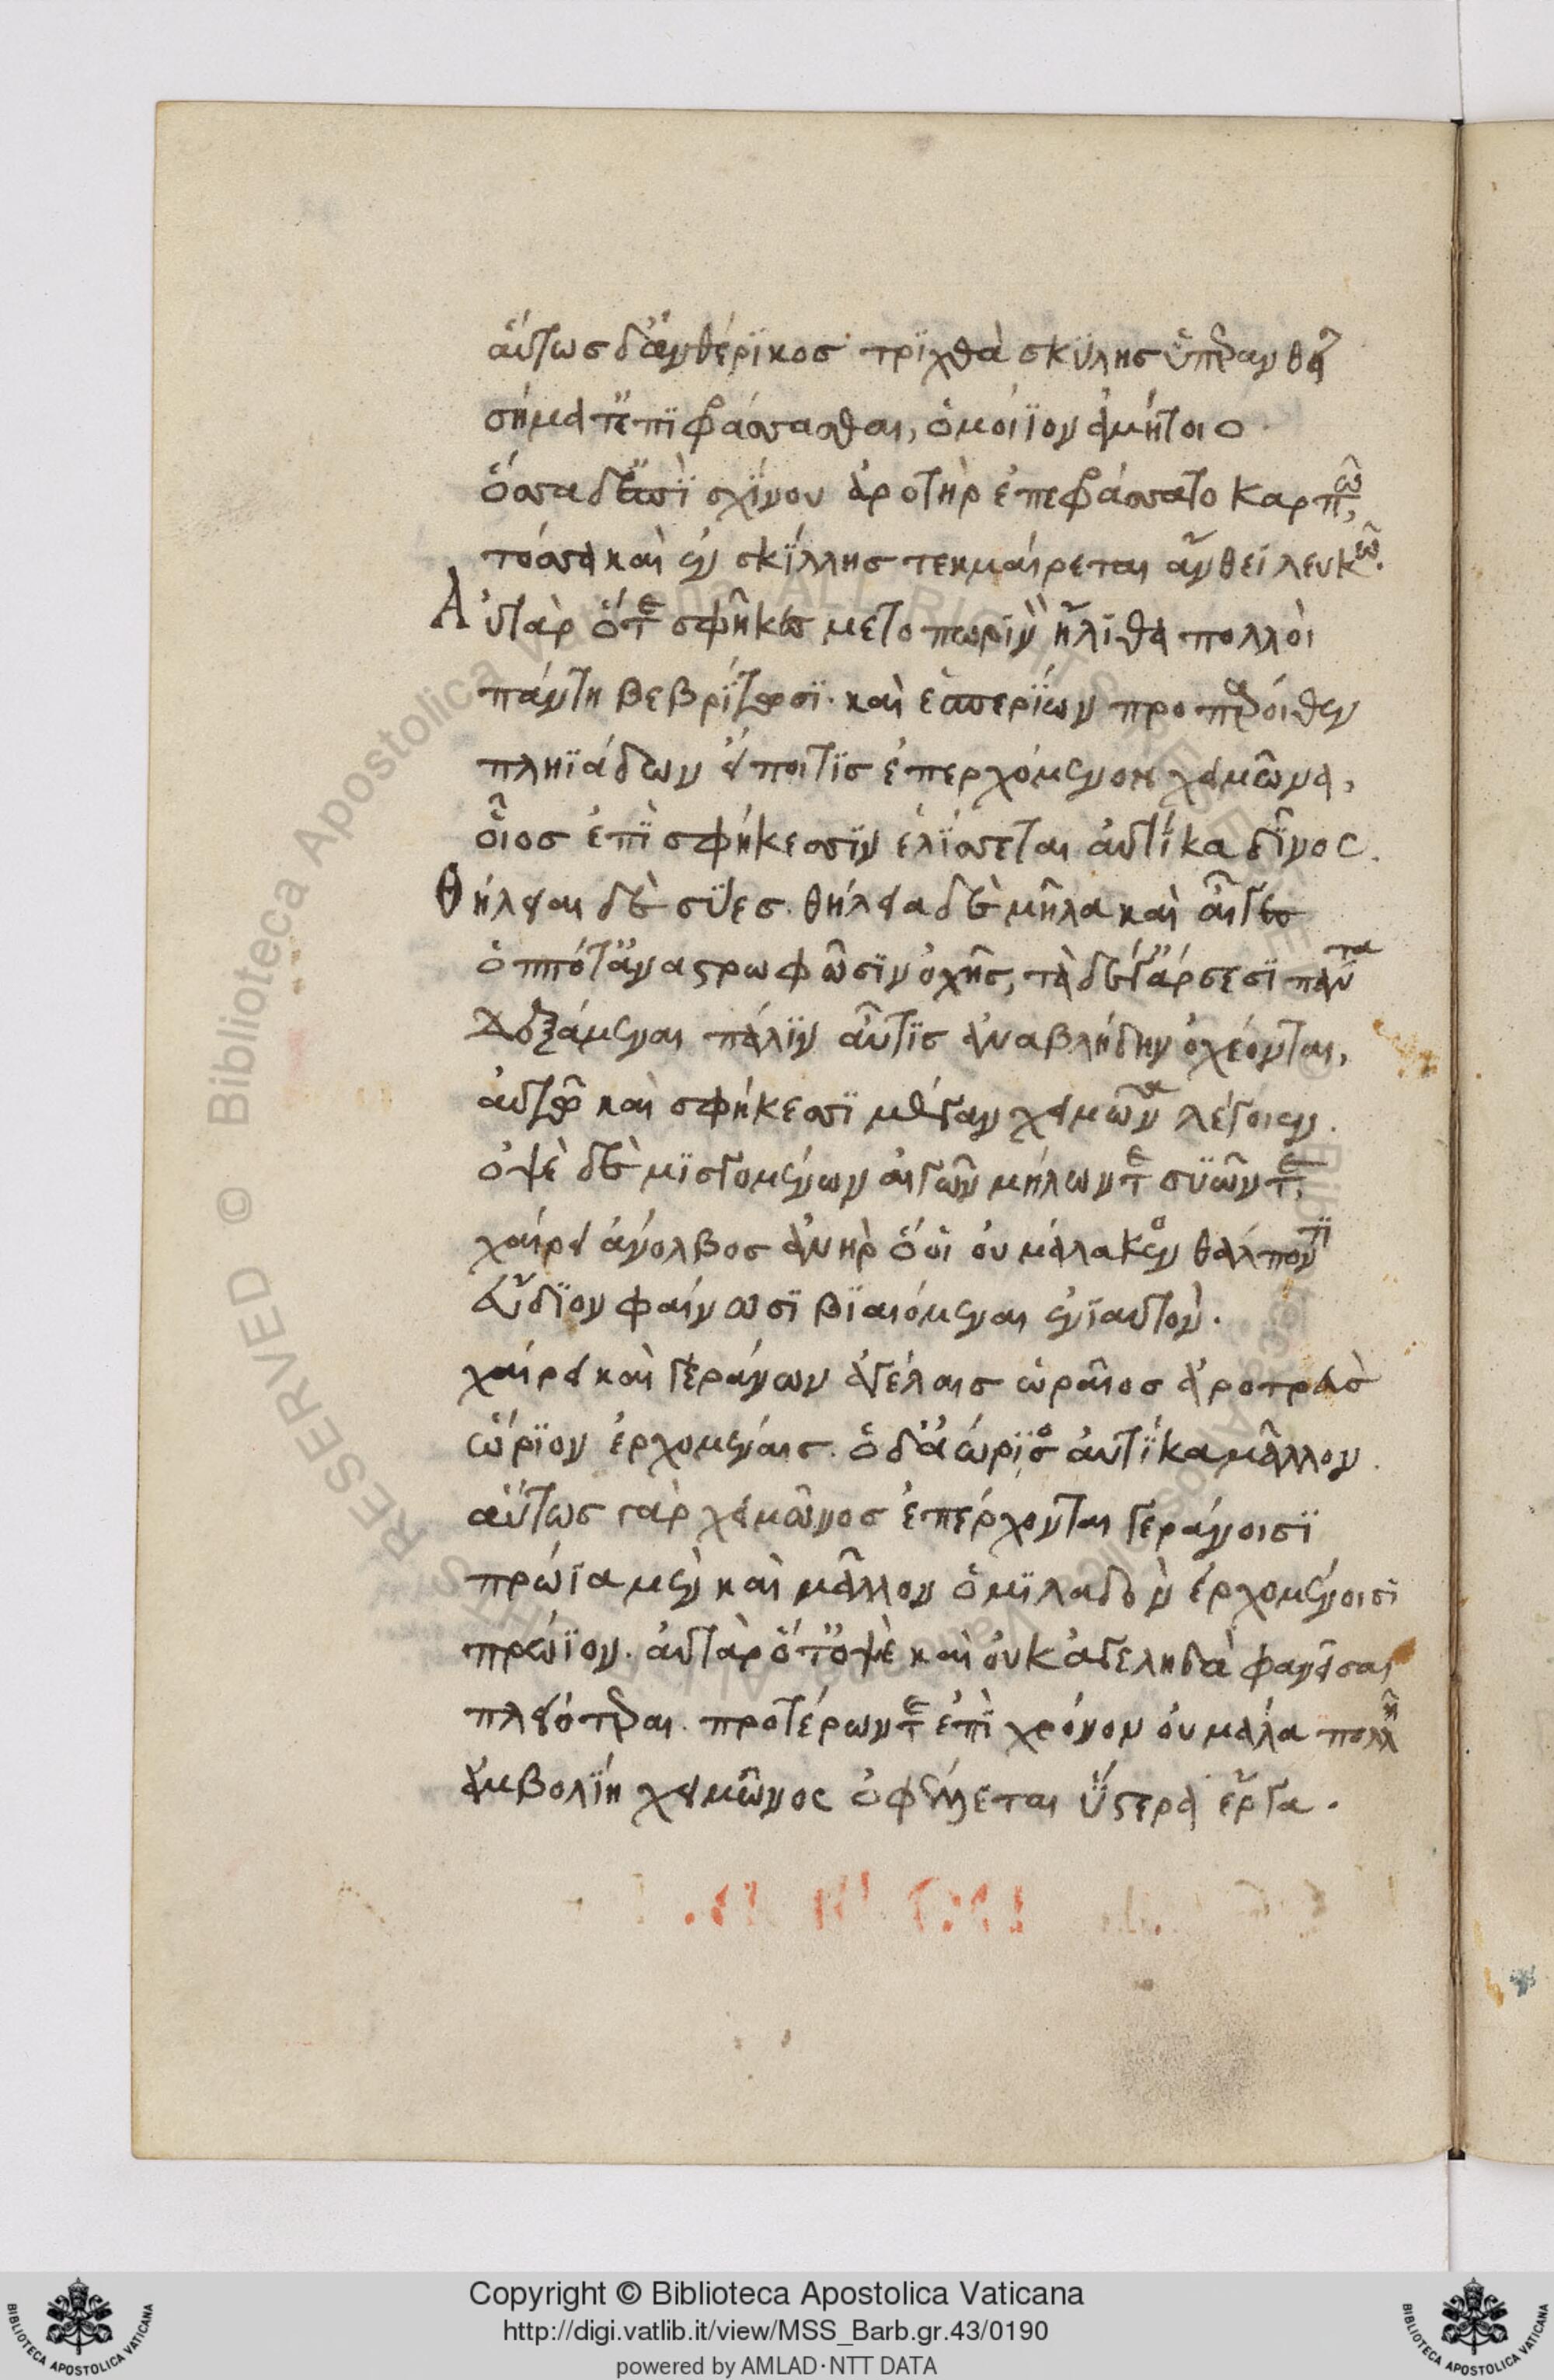 αὕτως δ' ἀνθέρικος τριχθὰ σκύλης ὑπερανθεῖ
σήματ' ἐπιφράσσασθαι, ὁμοίϊον ἀμήτοιο
ὅσσα δ' ἐπὶ σχίνου ἀροτὴρ ἐπεφράσσατο καρπῶ,
τόσσα καὶ ἐν σκίλλης τεκμαίρεται ἄνθεϊ λευκῶ.
Αὐτὰρ ὅτε σφῆκες μετοπωρινὸν ἤλιθα πολλοὶ
πάντη βεβρίθωσι. καὶ ἑσπερίων προπάροιθεν
πληϊάδων εἴποι τὶς ἐπερχόμενον χειμῶνα,
οἷος ἐπὶ σφήκεσσιν ἑλίσσεται αὐτίκα δῖνος.
Θήλειαι δὲ σύες. θήλεια δὲ μῆλα καὶ αἶγες
ὁππότ' ἀναστρωφῶσιν ὀχῆς, τὰ δέ γ' ἄρσεσι πάντα
δεξάμεναι πάλιν αὖτις ἀναβλήδην ὀχέονται,
αὔτως καὶ σφήκεσσι μέγαν χειμῶνα λέγοιεν.
ὀψὲ δὲ μισγομένων αἰγῶν μήλων τε συῶν τε,
χαίρει ἄνολβος ἀνὴρ ὅ οἱ οὐ μάλα κεν θάλποντι
εὔδιον φαίνωσι βιαιόμεναι ἐνιαυτόν.
χαίρει καὶ γεράνων ἀγέλαις ὡραῖος ἀροτρεὺς
ὥριον ἐρχομέναις. ὁ δ' ἀώριος αὐτίκα μᾶλλον.
αὔτως γὰρ χειμῶνος ἐπέρχονται γεράνοισι
πρώϊα μὲν καὶ μᾶλλον ὁμιλαδὸν ἐρχομένοισι
πρώϊον. αὐτὰρ ὅτ' ὀψὲ καὶ οὐκ ἀγεληδὰ φανεῖσαι
πλειότεραι. προτέρων τε ἐπὶ χρόνον οὐ μάλα πολλῆ
ἀμβολίη χειμῶνος ὀφέλλεται ὕστερα ἔργα.
Copyright © Biblioteca Apostolica Vaticana
http://digi.vatlib.it/view/MSS_Barb.gr.43/0190
powered by AMLAD·NTT DATA